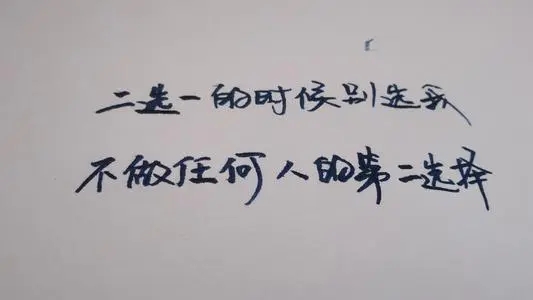 二选一的时候别选我
不做任何人的第二选择